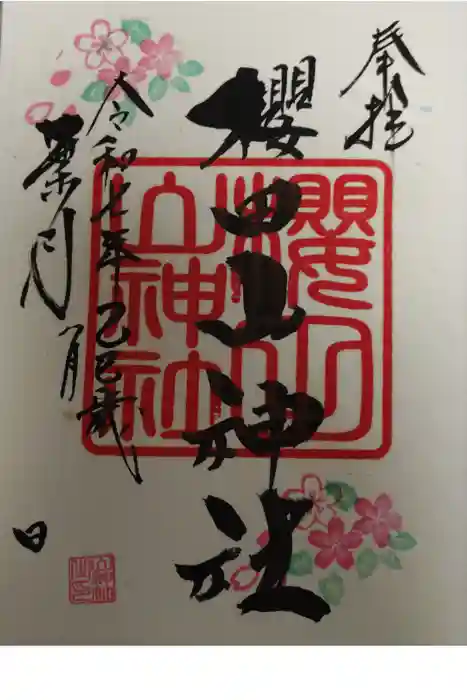 奉拝
櫻田山神社
櫻田
山神社
令和七年乙巳歳
葉月八月
日